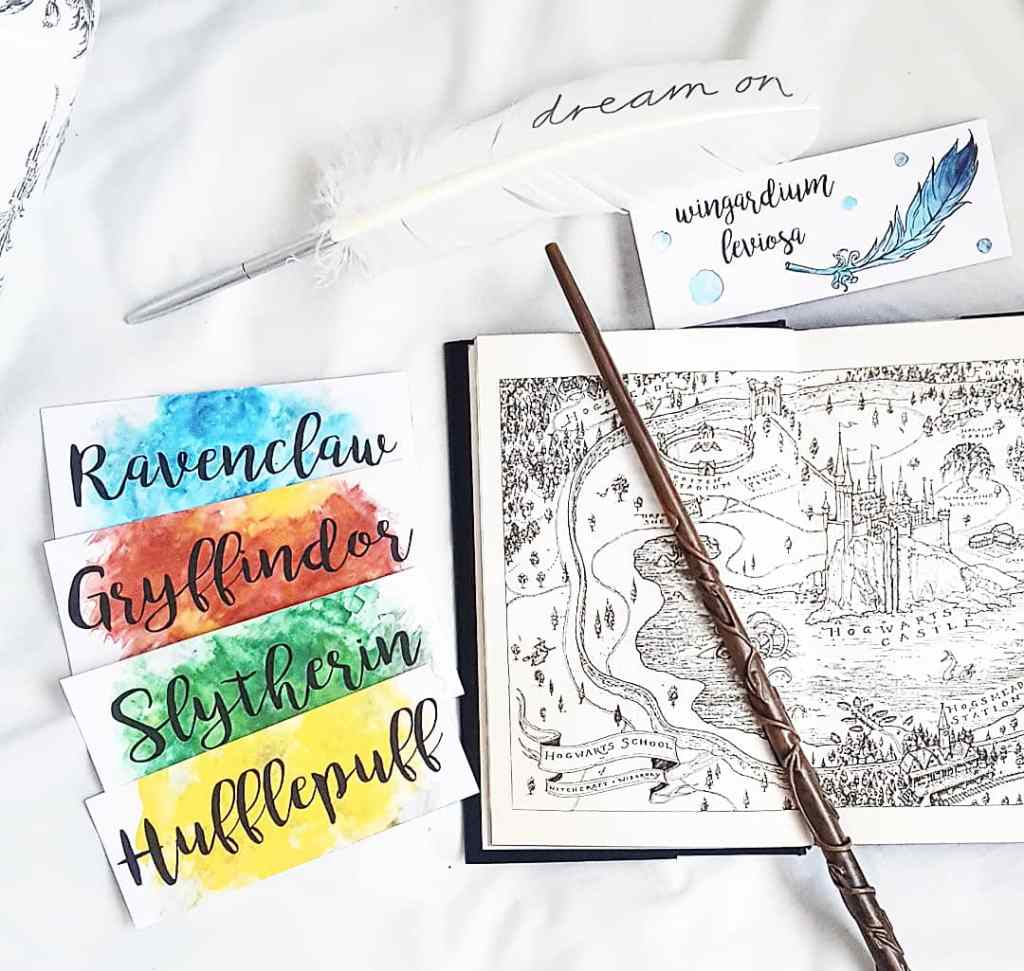 dream on
wingardium
leviosa
Ravenclaw
Gryffindor
Slytherin
Hufflepuff
HOGWARTS
HOGSMEADE
STATION
HOGWARTS SCHOOL
of
WITCHCRAFT & WIZARDRY